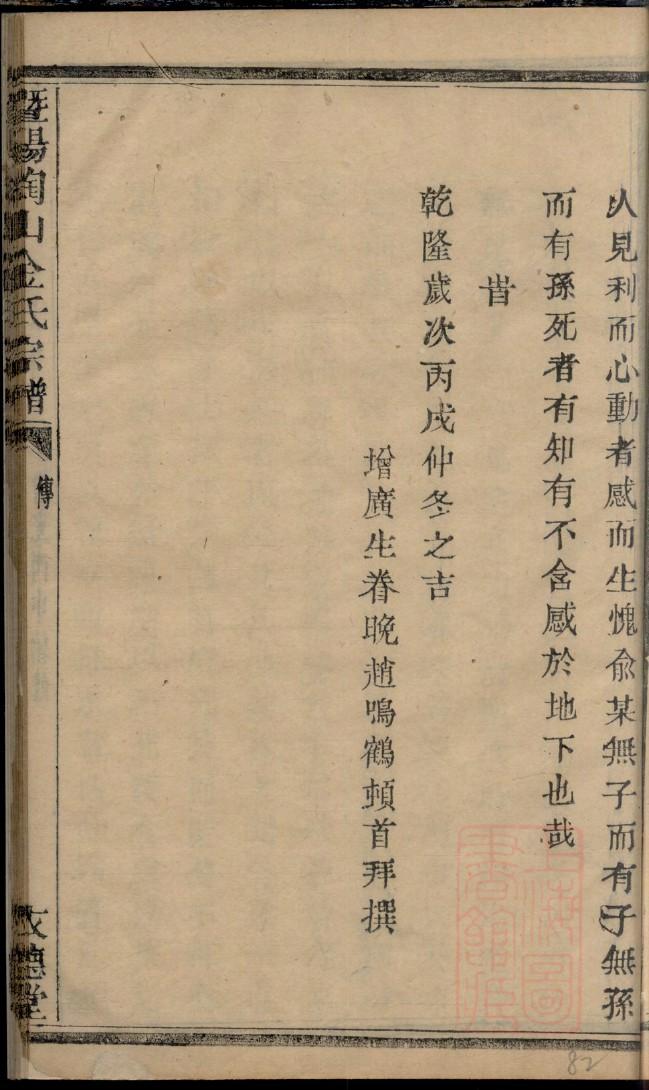 人見利而心動者感而生愧俞某無子而有子無孫
而有孫死者有知有不含感於地下也哉
旹
乾隆歲次丙戌仲冬之吉
增廣生眷晚趙鳴鶴頓首拜撰
暨陽陶山金氏宗譜
傳
文德堂
上海圖書館藏
82